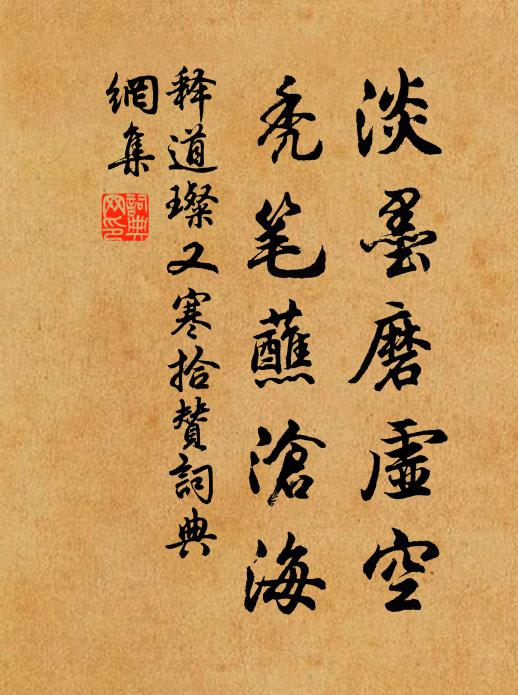 淡墨磨虛空
禿笔蘸滄海
释道璨又寒拾贊詞典
網集
詞典
网印